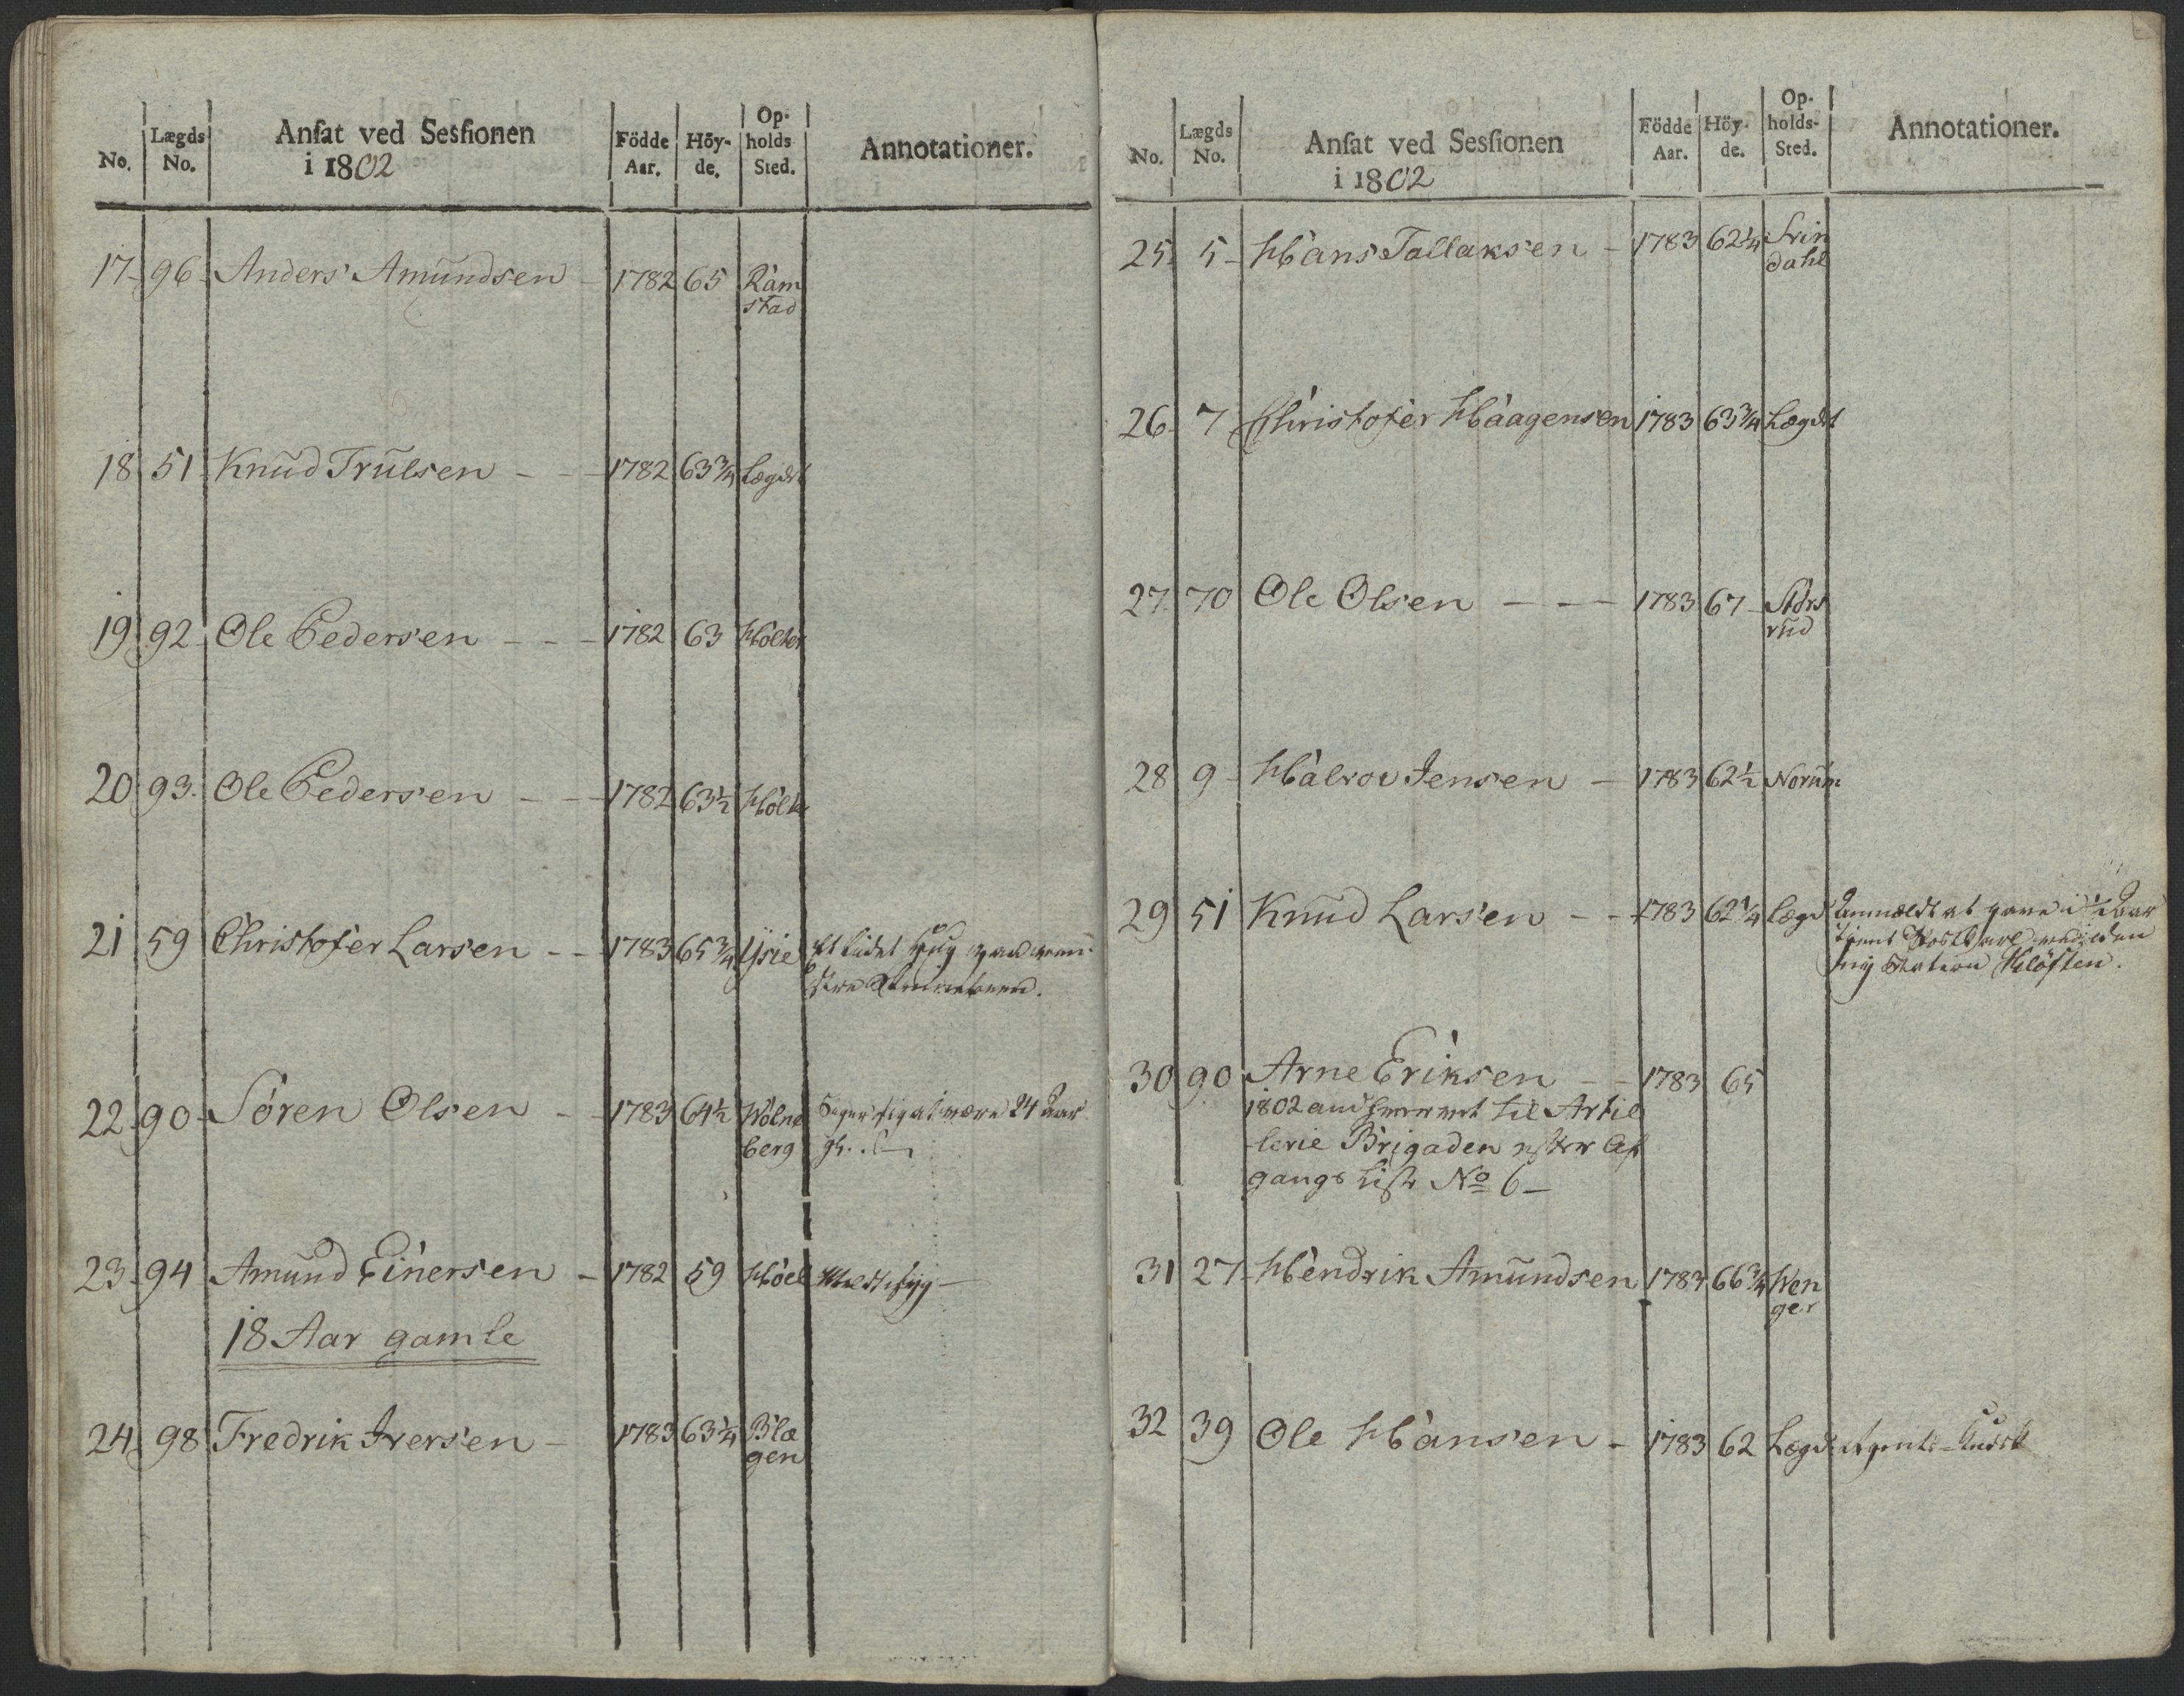 No. Lægds No. Ansat ved Sessionen i 1802 Födde Aar. Höy-de. Op-holds Sted. Annotationer.
17- 96- Anders Amundsen - 1782 65 Ram
stad
18 51 Knud Trulsen - - - 1782 63 3/4 Lægdet
19 92 Ole Pedersen - - - 1782 63 Holter
20 93. Ole Pedersen - - - 1782 63 1/2 Holter
21 59 Christofer Larsen - - 1783 65 3/4 Ysie Et lidet Hug paa ven-
stre
22 90- Sören Olsen - - 1783 64 1/2 Wolne Siger sig at være 24 Aar
berg
23- 94 Amund Einersen - 1782 59 Höel
18 Aar gamle
24 98 Fredrik Iversen - 1783 63 1/4 Blæ
gen
No. Lægds No. Ansat ved Sessionen i 1802 Födde Aar. Höy-de. Op-holds-Sted. Annotationer.
25 5- Hans Tallaksen - 1783 62 1/4 Frin
dahl
26- 7 Christofer Haagensen 1783 63 3/4 Lægdet
27 70 Ole Olsen - - - 1783 67 - Stors
rud
28 9- Halvor Jensen - 1783 62 1/2 Norum
29 51 Knud Larsen - - 1783 62 1/4 Lægd Anmeldt at have i 1/2 Aar
tient Postkarl ved den
ny Station Klöften.
30 90 Arne Eriksen - - 1783 65
1802 til Artil
lerie Brigaden efter Af
gangs Liste No 6 -
31 27- Hendrik Amundsen 1783 66 3/4 Wen
ger
32 39 Ole Hansen - 1783 62 Lægd